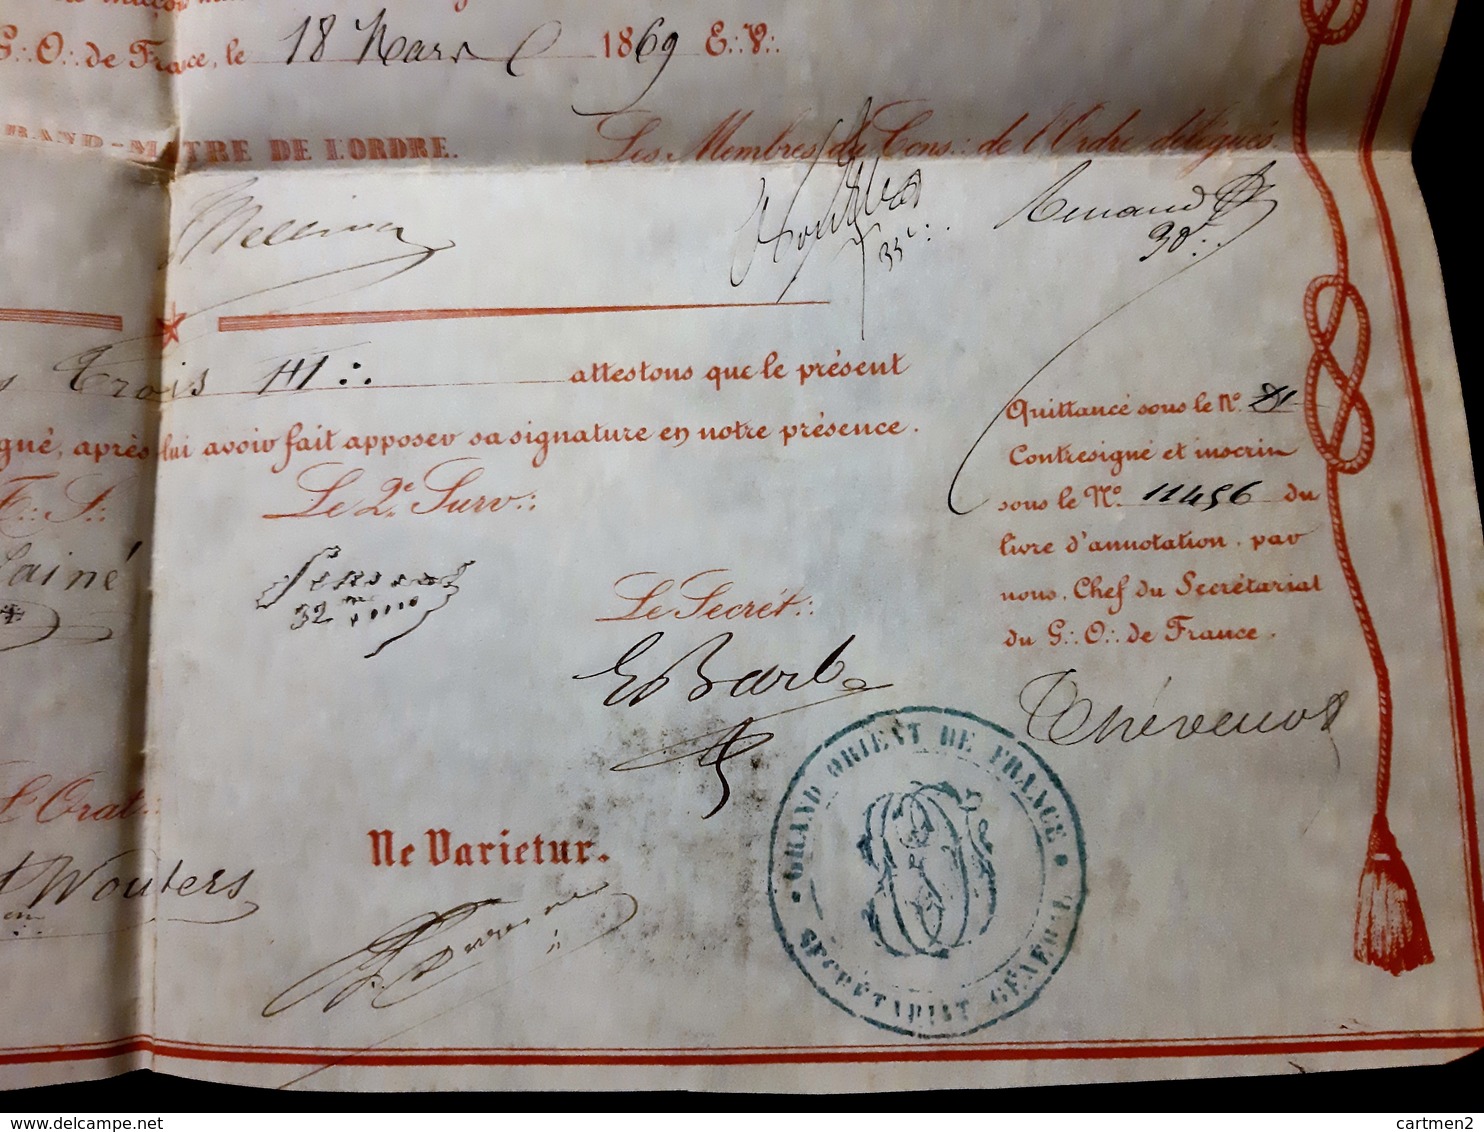 G∴ O∴ de France, le 18 Mars 1869 E∴ V∴
RAND-MAITRE DE L'ORDRE.
Les Membres du Cons∴ de l'Ordre délégués.
Mellinet
33e∴
Renaud
30e∴
Trois H∴ attestons que le présent
gné, après lui avoir fait apposer sa signature en notre présence.
T∴ S∴
Le 2e Surv∴
l'ainé
32me
Le Secrét∴
E Barbe
Quittancé sous le No. 81
Contresigné et inscrit
sous le No. 11456 du
livre d'annotation, par
nous, Chef du Secrétariat
du G∴ O∴ de France.
Thévenot
L'Orat∴
Wouters
Ne Varietur.
GRAND ORIENT DE FRANCE
SECRÉTARIAT GÉNÉRAL
www.delcampe.net
cartmen2